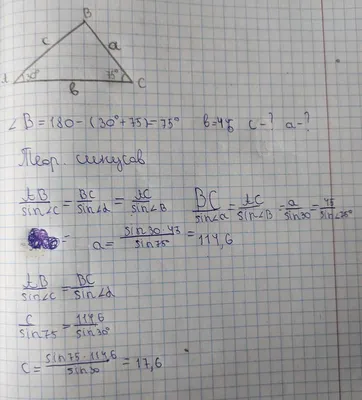 B
c a
A 30° 75° C
b
∠B = 180 - (30° + 75) = 75° b = 4,5 c - ? a - ?
Теор. синусов
AB/sin∠C = BC/sin∠A = AC/sin∠B BC/sin∠a = AC/sin∠B = a/sin30° = 45/sin∠75°
a = sin30·43/sin75 = 114,6
AB/sin∠C = BC/sin∠A
c/sin75 = 114,6/sin30°
C = sin75·114,6/sin30 = 17,6